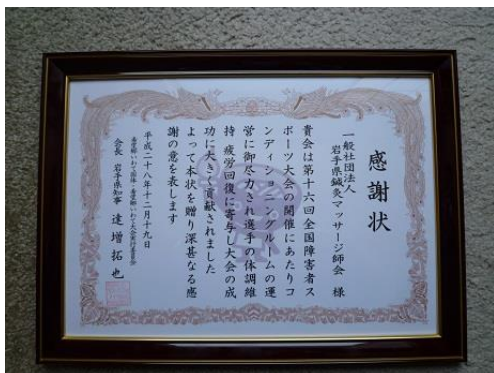 感謝状
一般社団法人
岩手県鍼灸マッサージ師会 様
貴会は第十六回全国障害者ス
ポーツ大会の開催にあたりコ
ンディショニングルームの運
営に御尽力され選手の体調維
持 疲労回復に寄与し大会の成
功に大きく貢献されました
よって本状を贈り深甚なる感
謝の意を表します
平成二十八年十二月十九日
希望郷いわて国体・希望郷いわて大会実行委員会
会長 岩手県知事 達増拓也